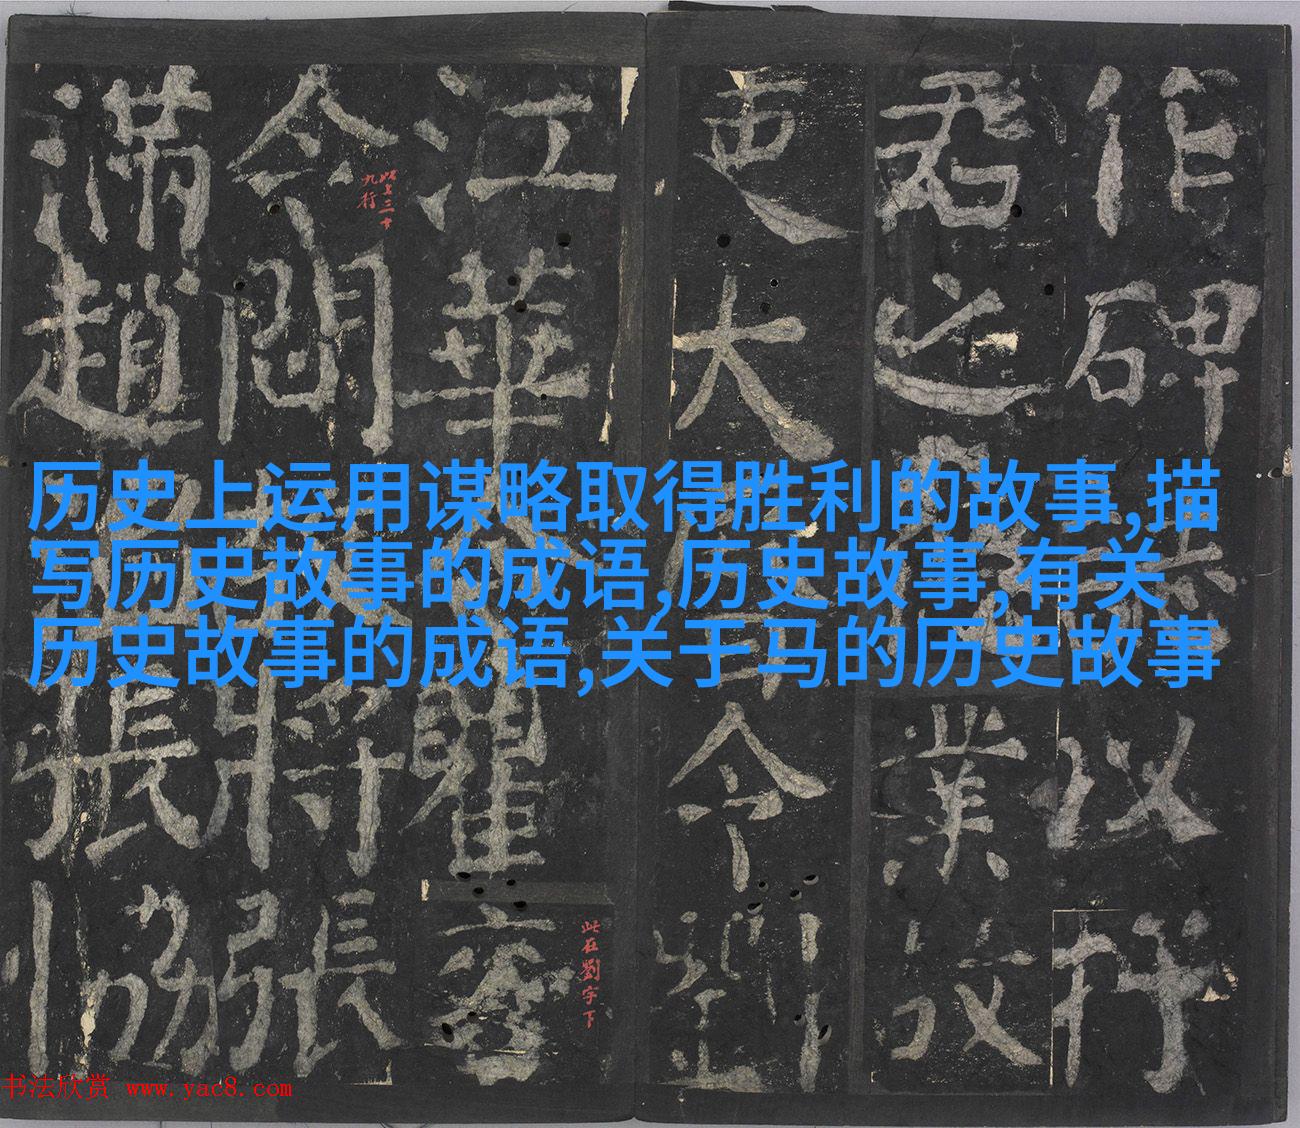 作碑
君之
吏大
江華
令閻
滿趙
历史上运用谋略取得胜利的故事,描
写历史故事的成语,历史故事,有关
历史故事的成语,关于马的历史故事
以行
業故
令劉
瞿
將張
張協
此上三十
九行
此在劉字下
书法欣赏 www.yac8.com